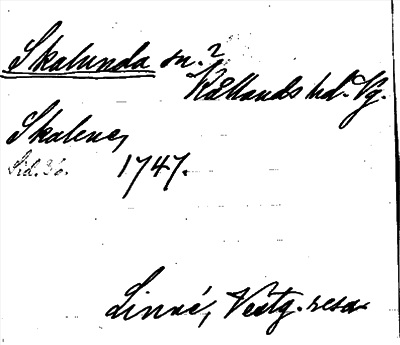 Skalunda sn.?
Kållands hd. Vg.
Skalene,
Sid. 36. 1747.
Linné, Vestg. resa